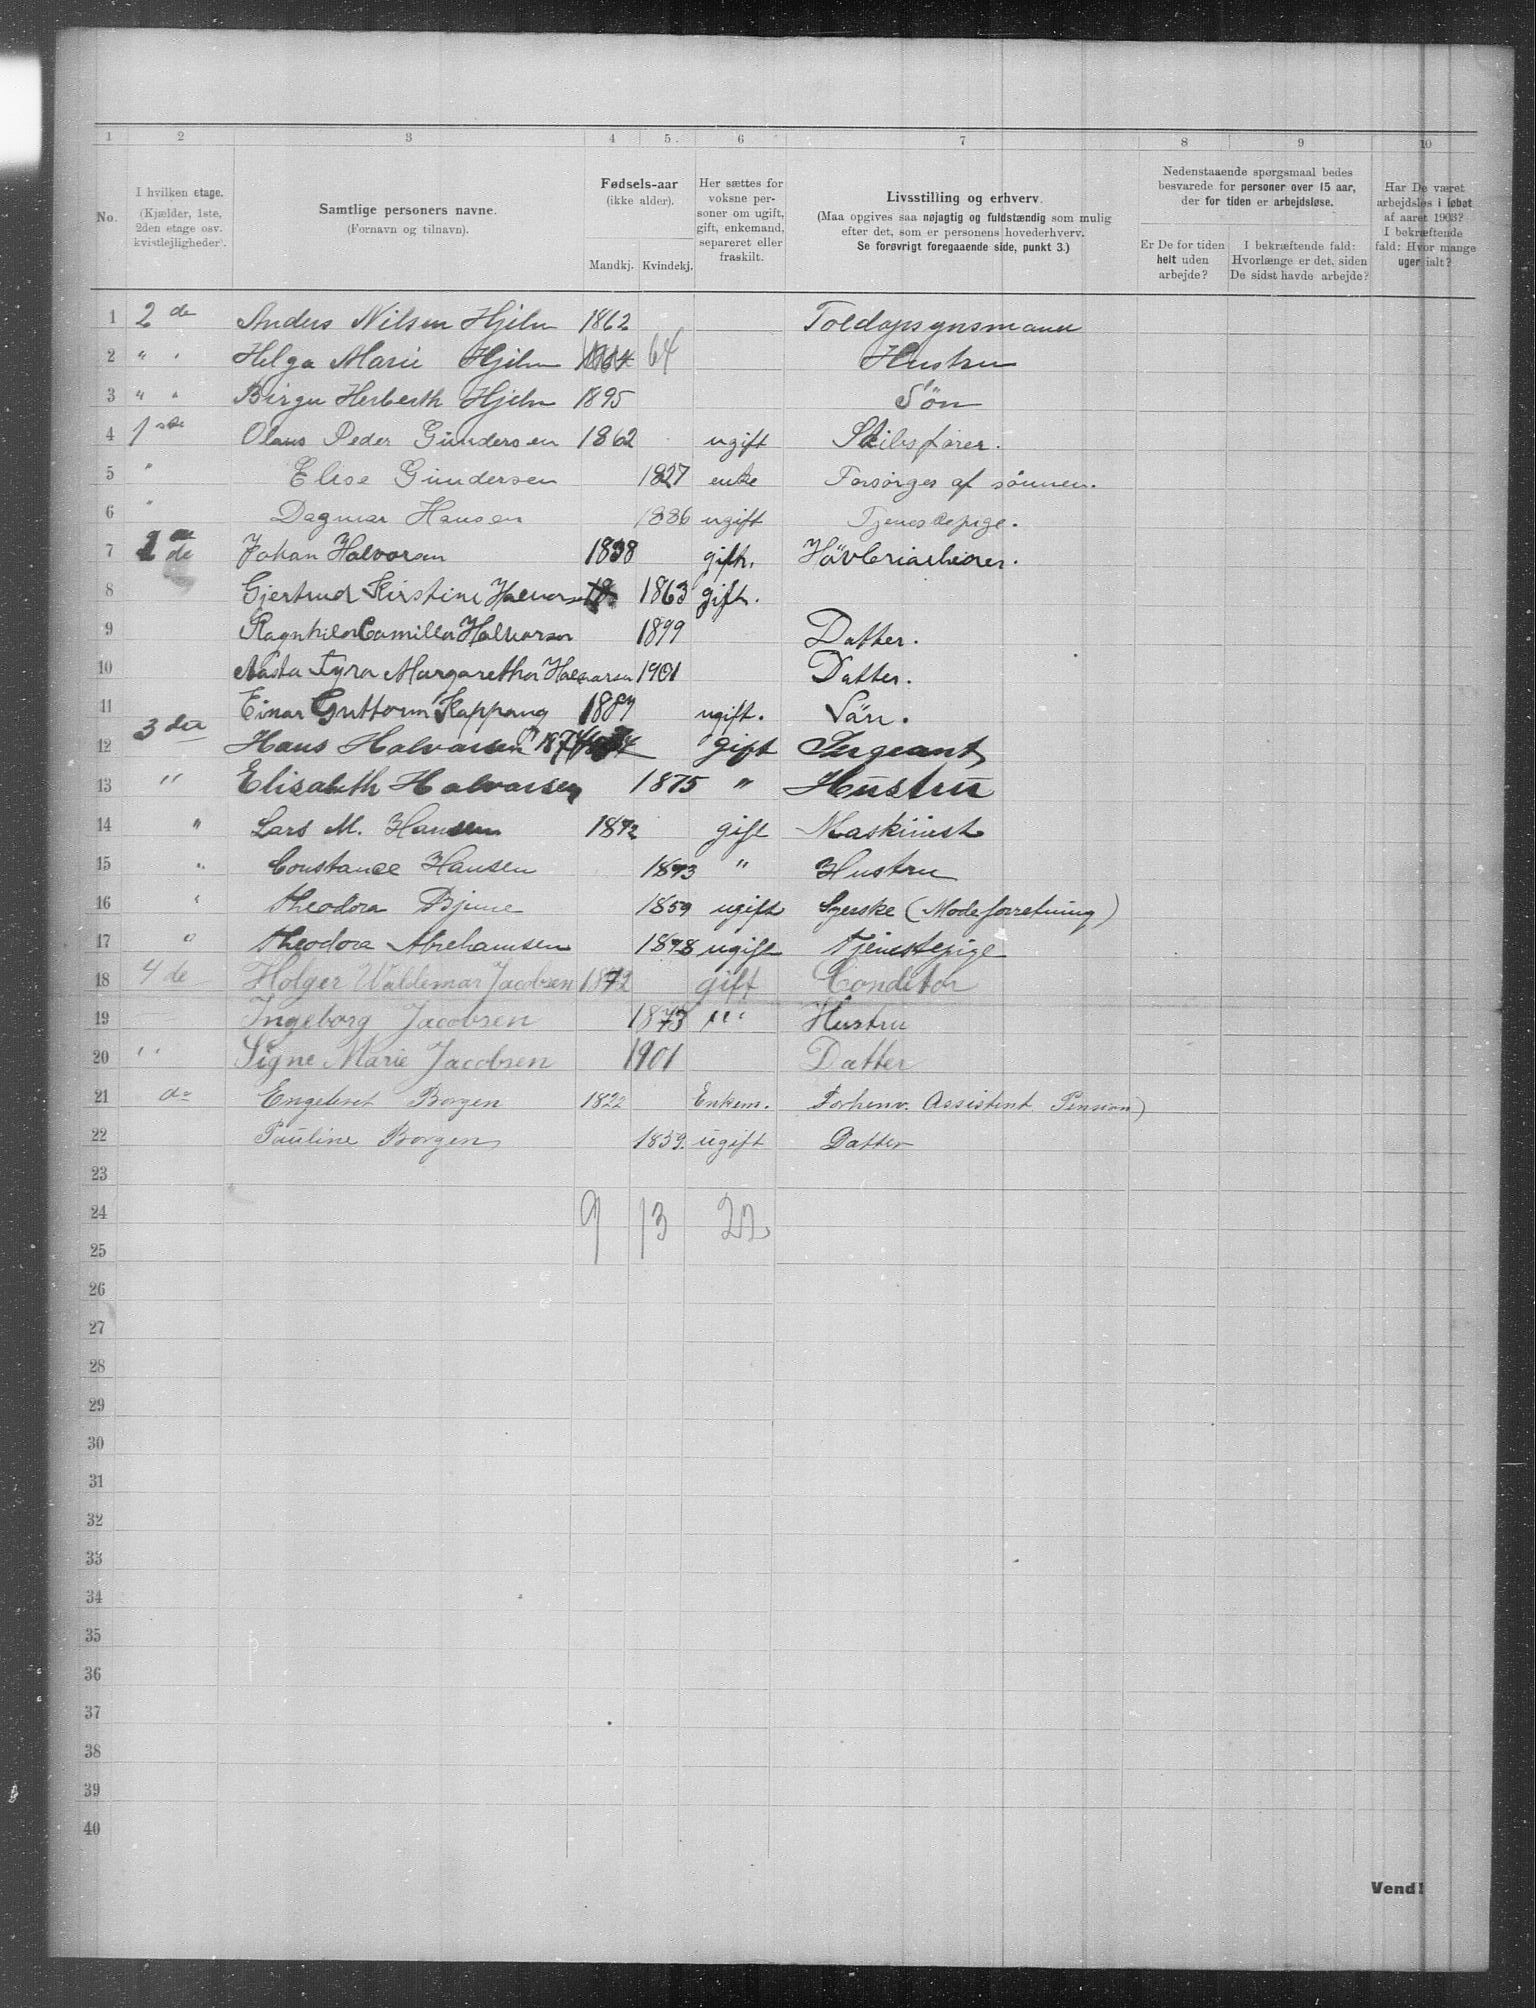 1 2 3 4 5. 6 7 8 9 10
No.
I hvilken etage.
(Kjælder, 1ste, 2den etage osv. kvistlejligheder).
Samtlige personers navne.
(Fornavn og tilnavn).
Fødsels-aar
(ikke alder).
Mandkj. Kvindekj.
Her sættes for voksne personer om ugift, gift, enkemand, separeret eller fraskilt.
Livsstilling og erhverv.
(Maa opgives saa nøjagtig og fuldstændig som mulig
efter det, som er personens hovederhverv.
Se forøvrigt foregaaende side, punkt 3.)
Nedenstaaende spørgsmaal bedes
besvarede for personer over 15 aar,
der for tiden er arbejdsløse.
Er De for tiden helt uden arbejde?
I bekræftende fald: Hvorlænge er det, siden De sidst havde arbejde?
Har De været arbejdsløs i løbet af aaret 1903? I bekræftende fald: Hvor mange uger ialt?
1 2 de Anders Nilsen Hjelm 1862 Toldopsynsmand
2 " " Helga Marie Hjelm 1864 64 Hustru
3 " " Birger Herberth Hjelm 1895 Søn
4 1ste Olaus Peder Gundersen 1862 ugift Skibsfører.
5 " Elise Gundersen 1827 enke Forsörges af sönnen.
6 " Dagmar Hansen 1886 ugift Tjenestepige.
7 2 de Johan Halvorsen 1838 gift. Hövleriarbeider.
8 Gjertrud Kirstine Halvorsen 18 1863 gift.
9 Ragnhild Camilla Halvorsen 1899 Datter.
10 Aasta Tyra Margaretha Halvorsen 1901 Datter.
11 Einar Guttorm Kappang 1887 ugift. Sön.
12 3 die Hans Halvorsen 1874 gift Sergeant
13 " Elisabeth Halvorsen 1875 " Hustru
14 " Lars M. Hansen 1872 gift Maskinist
15 " Constance Hansen 1873 " Hustru
16 " Theodora Bjune 1859 ugift Syerske (Modeforretning)
17 " Theodora Abrahamsen 1878 ugift Tjenestepige
18 4 de Holger Waldemar Jacobsen 1872 gift Conditor
19 Ingeborg Jacobsen 1873 " Hustru
20 " Signe Marie Jacobsen 1901 Datter
21 do Engebret Borgen 1822 Enkem. Forhenv. Assistent Pension)
22 Pauline Borgen 1859. ugift Datter
23
24 9 13 22
25
26
27
28
29
30
31
32
33
34
35
36
37
38
39
40
Vend!